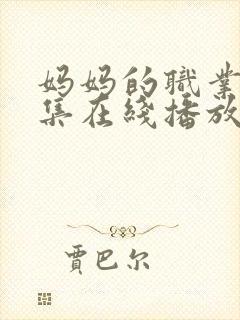 妈妈的職業
集在綫播放
賈巴尔